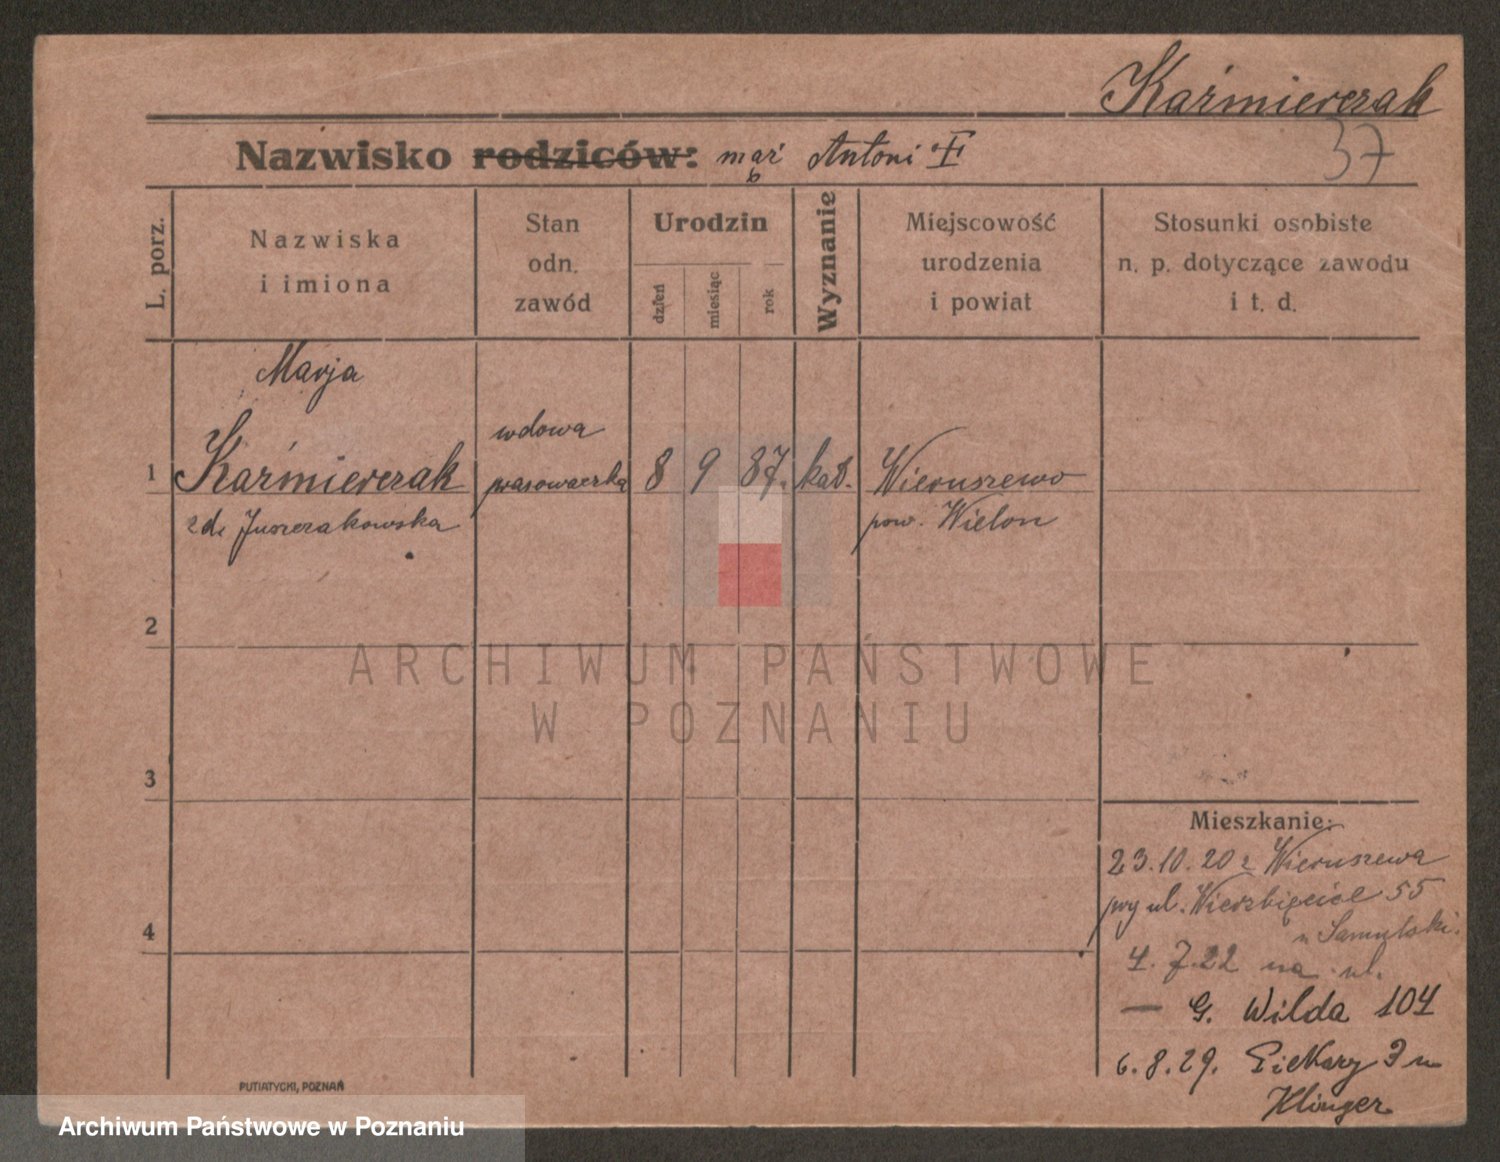 Kaźmierczak
37
Nazwisko rodziców: mąż Antoni
L. porz.
Nazwiska
i imiona
Stan
odn.
zawód
Urodzin
dzień
miesiąc
rok
Wyznanie
Miejscowość
urodzenia
i powiat
Stosunki osobiste
n. p. dotyczące zawodu
i t. d.
Marja
1 Kaźmierczak wdowa prasowaczka 8 9 87. kat. Wieruszewo
zd. Juszczakowska pow. Wielon
2
3
4
Mieszkanie:
23.10.20 z Wieruszewa
przy ul. Wierzbięcice 55
u Samulski.
4.7.22 na ul.
— G. Wilda 104
6.8.29. Piekary 3 u
Klinger
PUTIATYCKI, POZNAŃ
ARCHIWUM PAŃSTWOWE
W POZNANIU
Archiwum Państwowe w Poznaniu